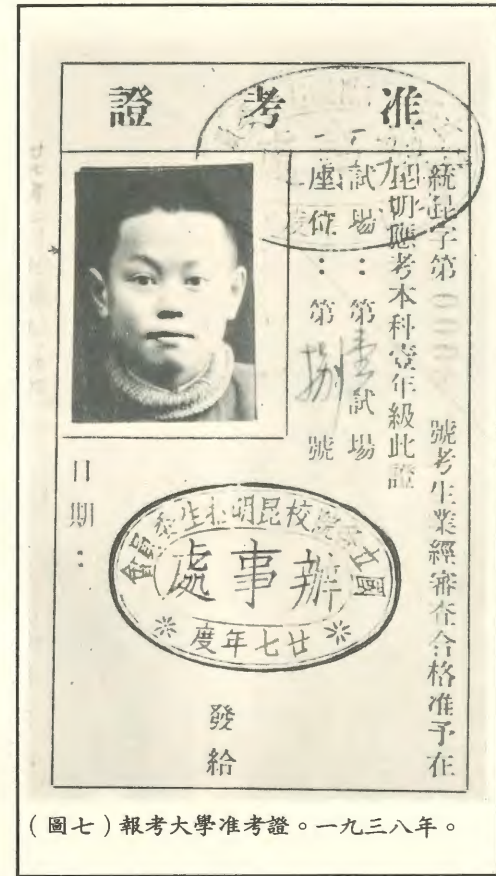 准考證
統昆字第 號考生業經審查合格准予在
昆明應考本科壹年級此證
試場：第壹試場
座位：第捌號
日期：
國立各院校昆明招生委員會
辦事處
廿七年度
發給
（圖七）報考大學准考證。一九三八年。